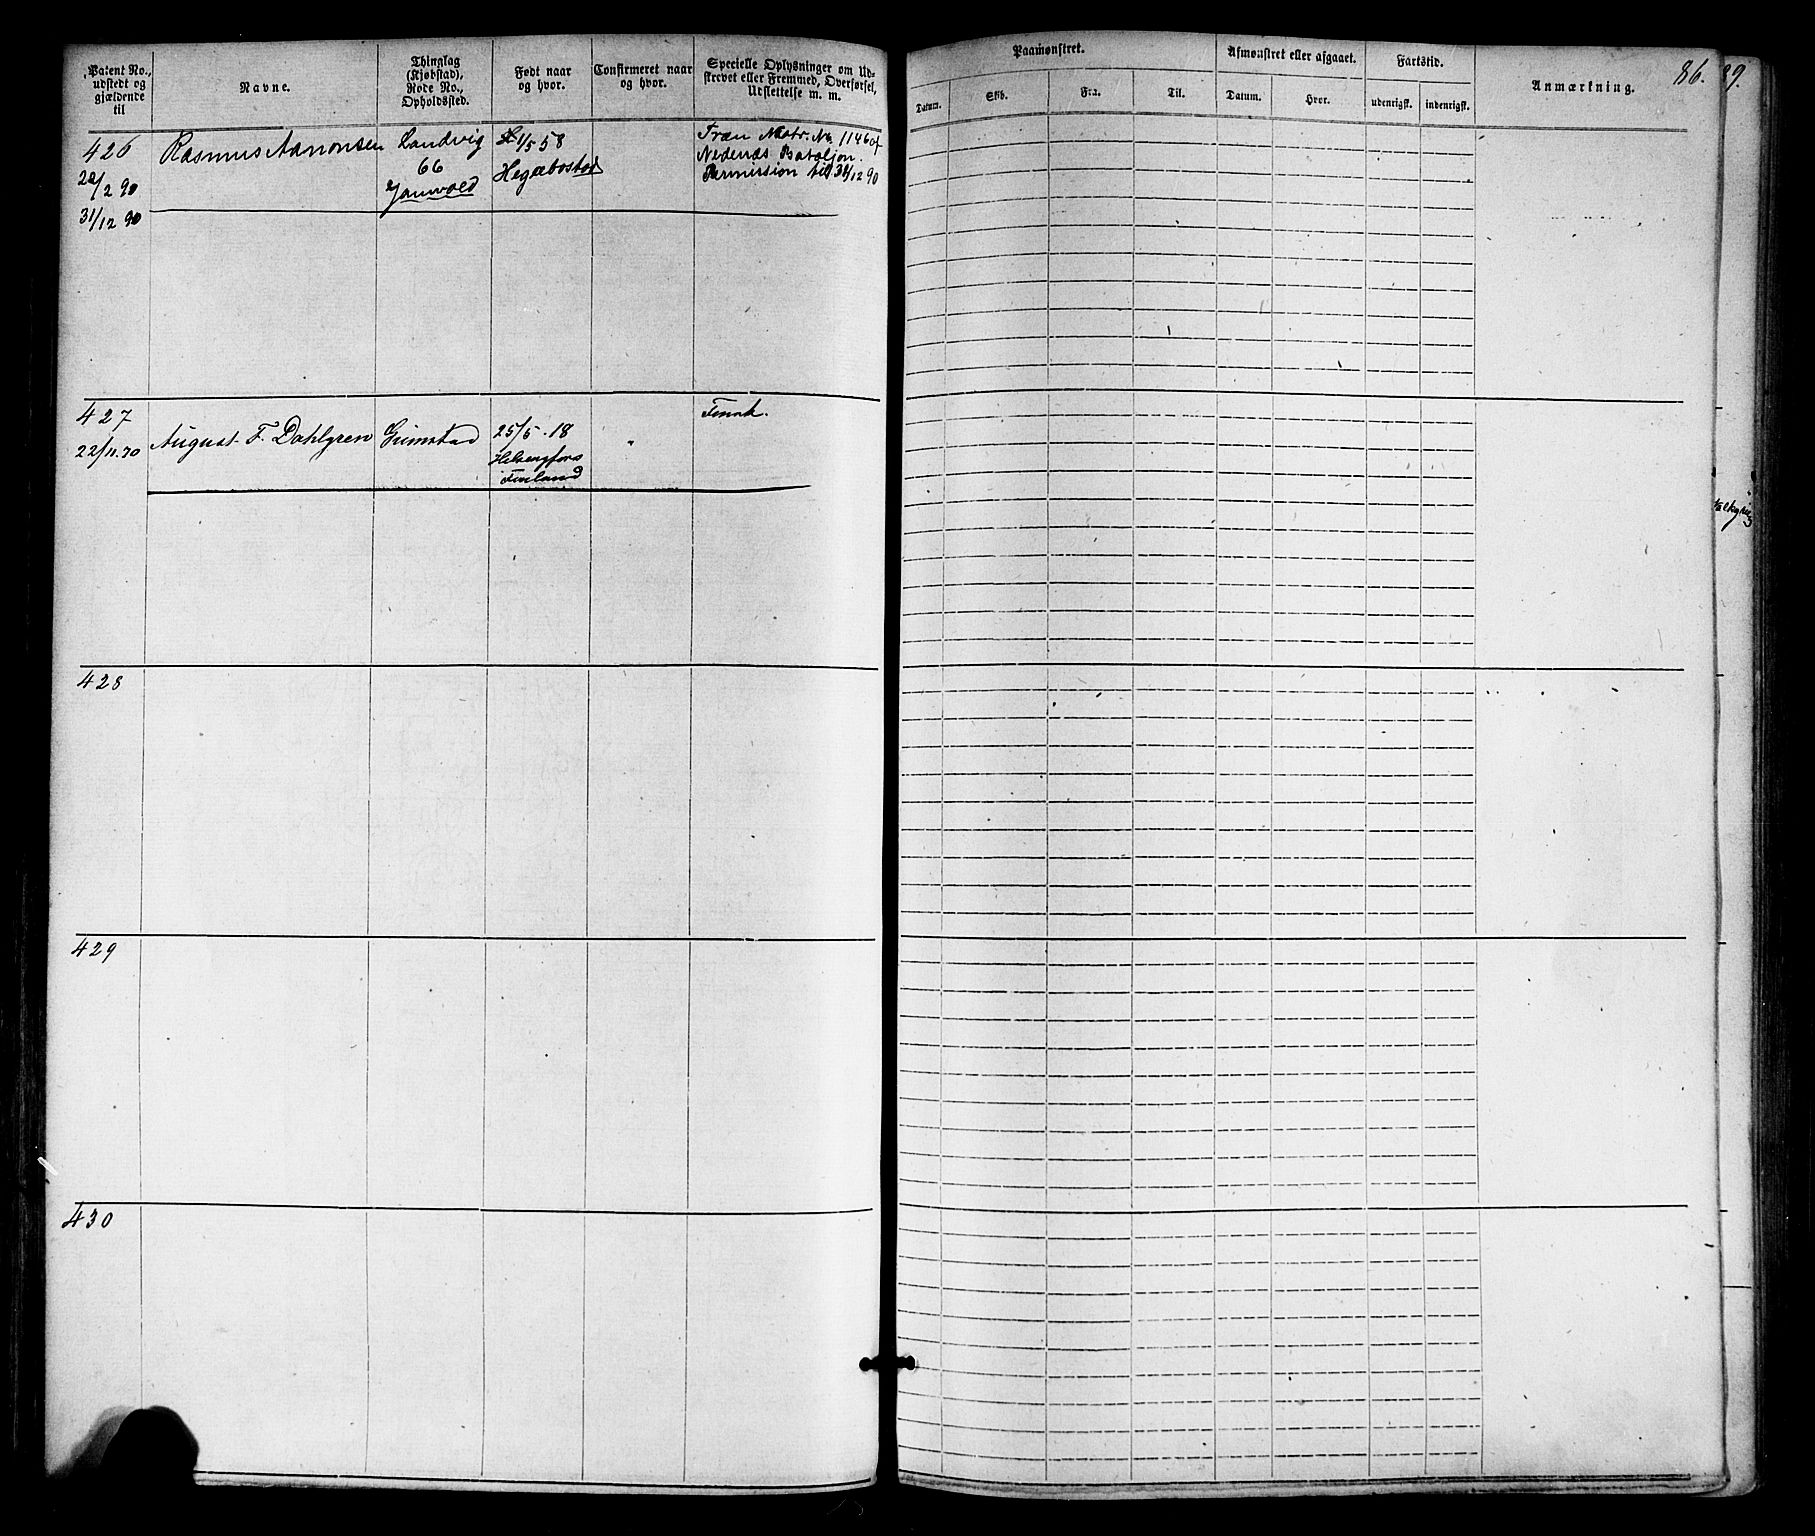 Patent No., udstedt og gjældende til
Navne.
Thinglag (Kjøbstad), Rode No., Opholdssted.
Født naar og hvor.
Confirmeret naar og hvor.
Specielle Oplysninger om Udskrevet eller Fremmed, Overførsel, Udslettelse m. m.
Paamønstret.
Datum.
Skib.
Fra.
Til.
Afmønstret eller afgaaet.
Datum.
Hvor.
Fartstid.
udenrigsk.
indenrigsk.
Anmærkning.
86.
89.
426
Rasmus Aanonsen
Landvig
1/5 58
Træn Matr. No 1146 af
Nedenæs Bataljon.
66
Hegebostad
Permission til 31/12 90
/2 90
31/12 90
427
August F. Dahlgren
Grimstad
25/5 - 18
Finsk.
22/11.70
Helsengfors
Finland
428
429
430